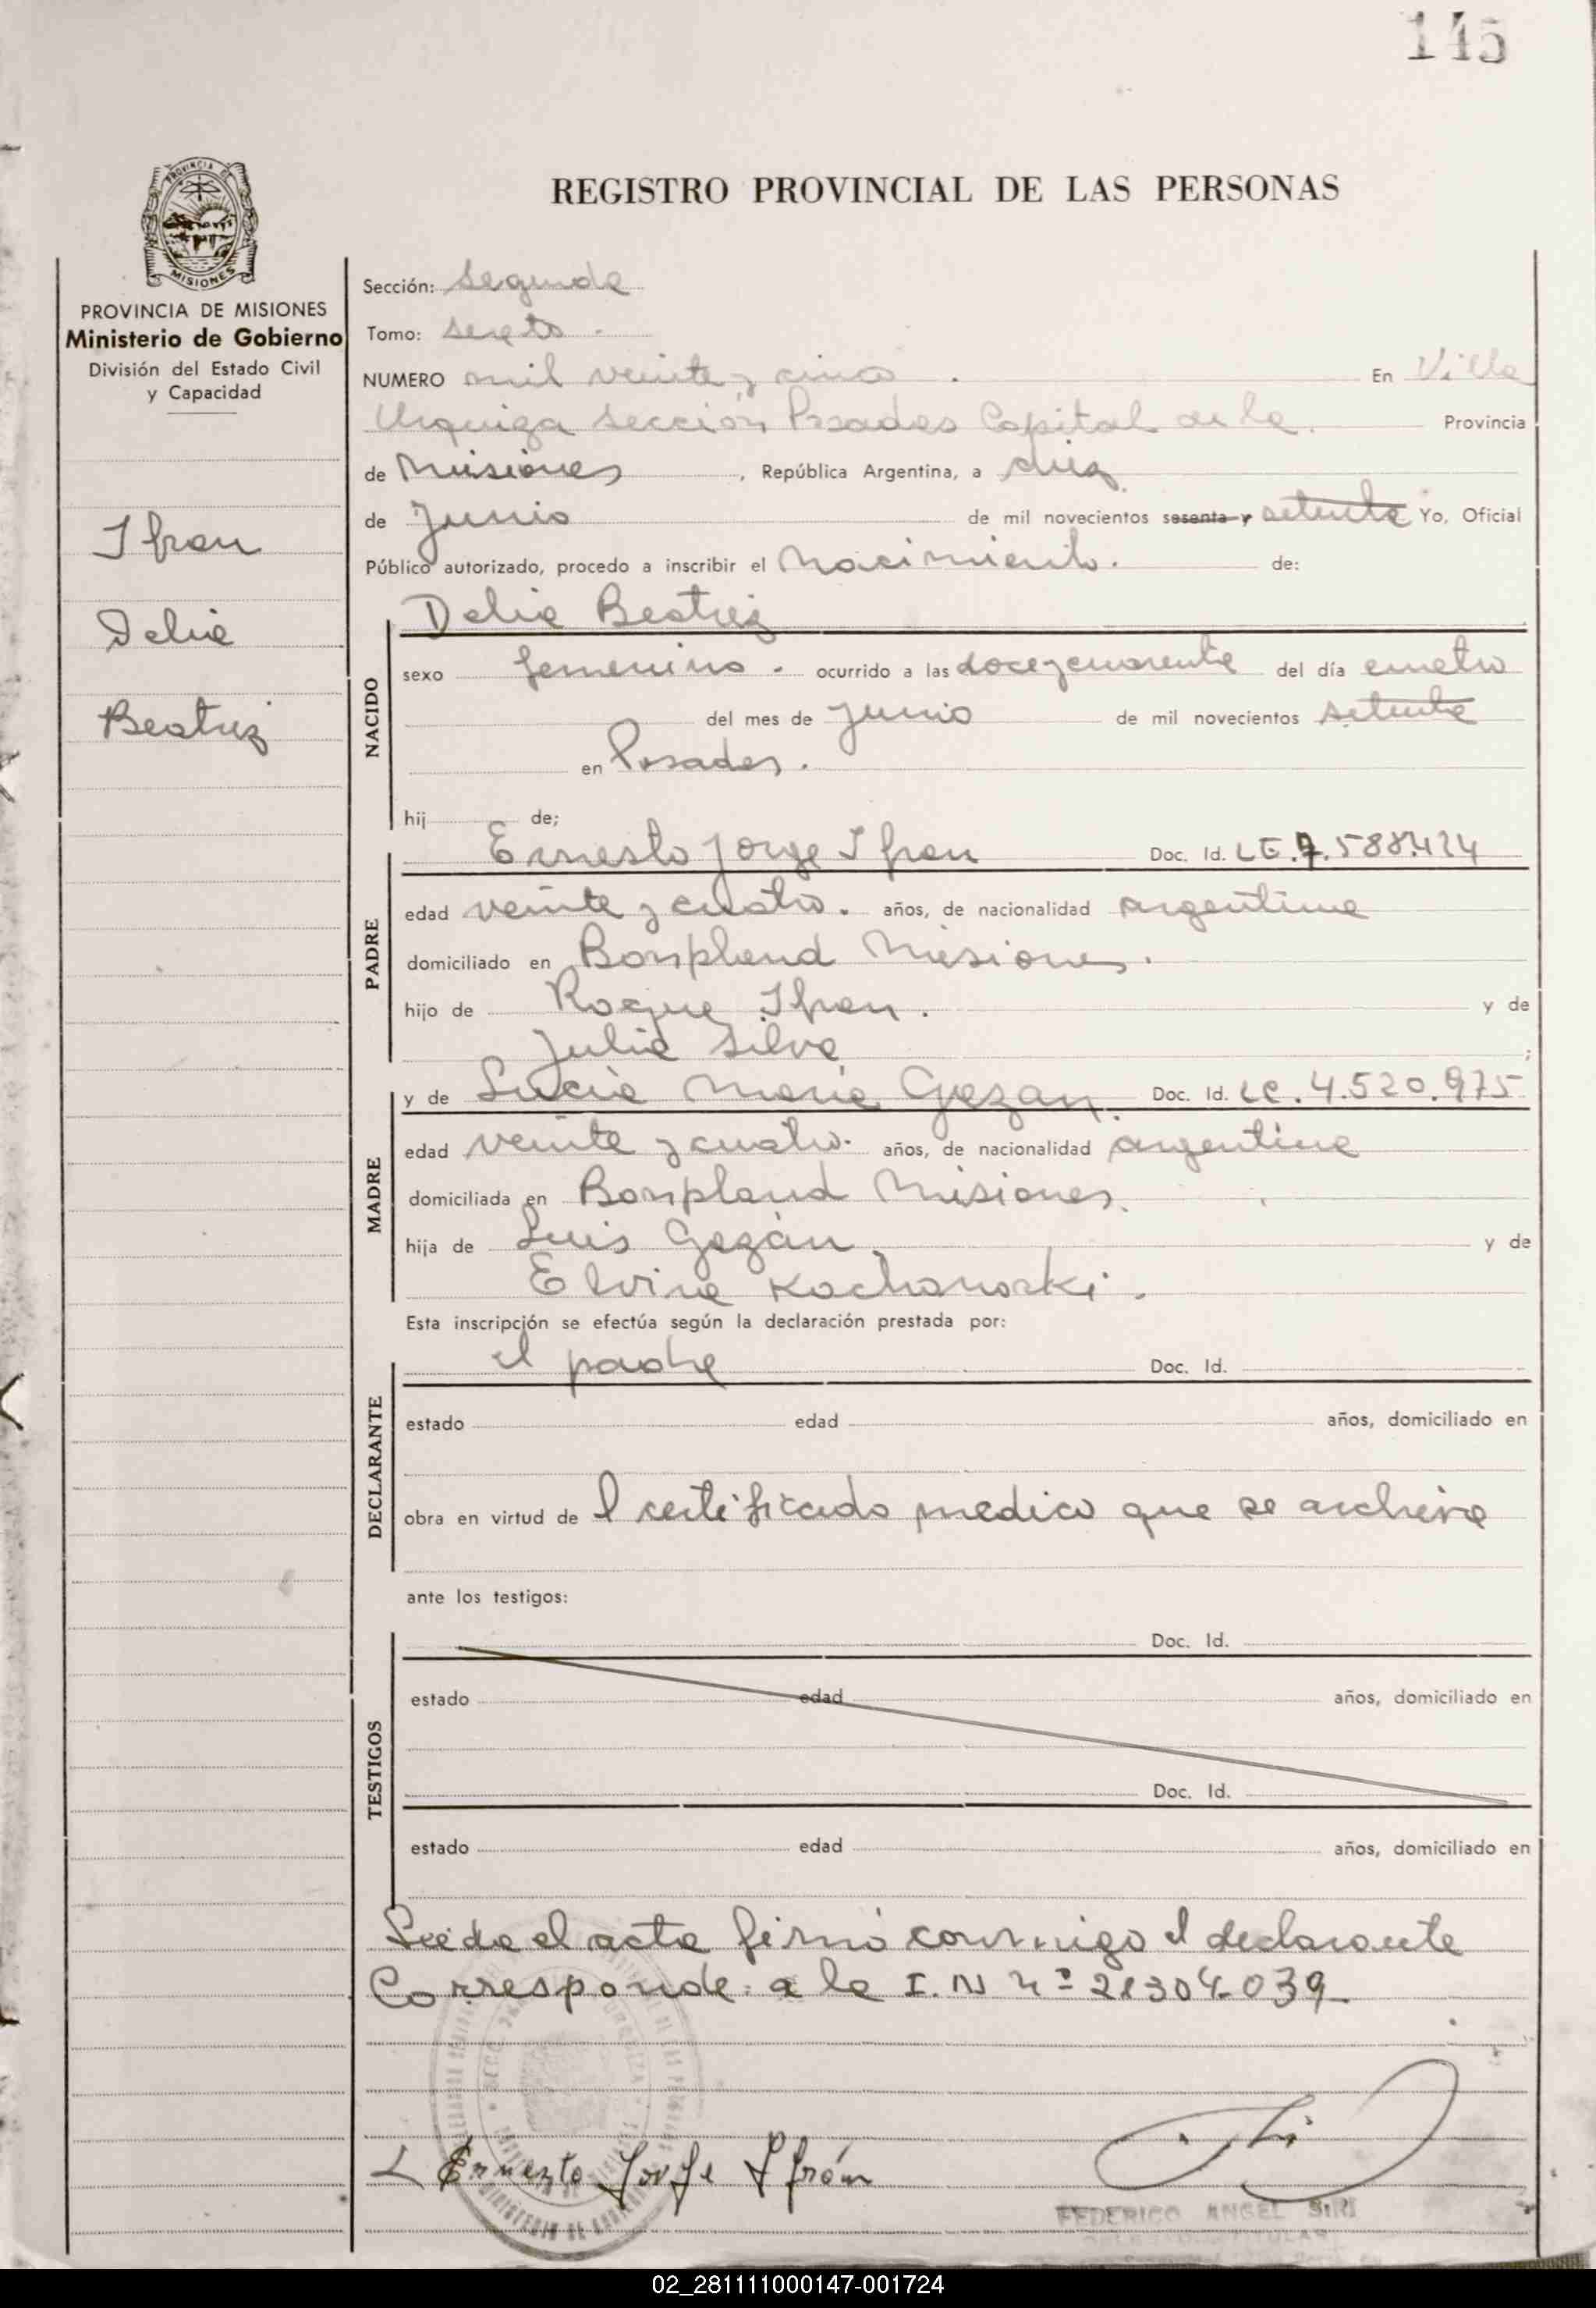 145
REGISTRO PROVINCIAL DE LAS PERSONAS
PROVINCIA DE MISIONES
MISIONES
PROVINCIA DE MISIONES
Ministerio de Gobierno
División del Estado Civil
y Capacidad
Ifran
Delia
Beatriz
Sección: Segunda
Tomo: sexto.
NUMERO mil veinte y cinco. En Villa
Urquiza Sección Posadas Capital de la. Provincia
de Misiones, República Argentina, a diez
de Junio de mil novecientos sesenta y setenta Yo, Oficial
Público autorizado, procedo a inscribir el Nacimiento. de:
Delia Beatriz
NACIDO
sexo femenino. ocurrido a las doce y cuarenta del día cuatro
del mes de Junio de mil novecientos setenta
en Posadas.
hij de;
Ernesto Jorge Ifran Doc. Id. LE.7.588.424
PADRE
edad veinte y cuatro. años, de nacionalidad argentina
domiciliado en Bonpland Misiones.
hijo de Roque Ifran. y de
Julia Silva ;
y de Lucia Maria Gazan. Doc. Id. LC. 4.520.975
MADRE
edad veinte y cuatro. años, de nacionalidad argentina
domiciliada en Bonpland Misiones.
hija de Luis Gazán. y de
Elvira Kochanoski.
Esta inscripción se efectúa según la declaración prestada por:
el padre Doc. Id.
DECLARANTE
estado edad años, domiciliado en
obra en virtud de l certificado medico que se archiva
ante los testigos:
Doc. Id.
TESTIGOS
estado edad años, domiciliado en
Doc. Id.
estado edad años, domiciliado en
Leida el acta firmó conmigo el declarante
Corresponde a la I. N nº 21304039
Ernesto Jorge Ifrán
FEDERICO ANGEL SIRI
02_281111000147-001724